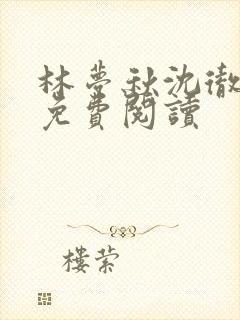 林夢秋沈徹
免費閱讀
樓縈